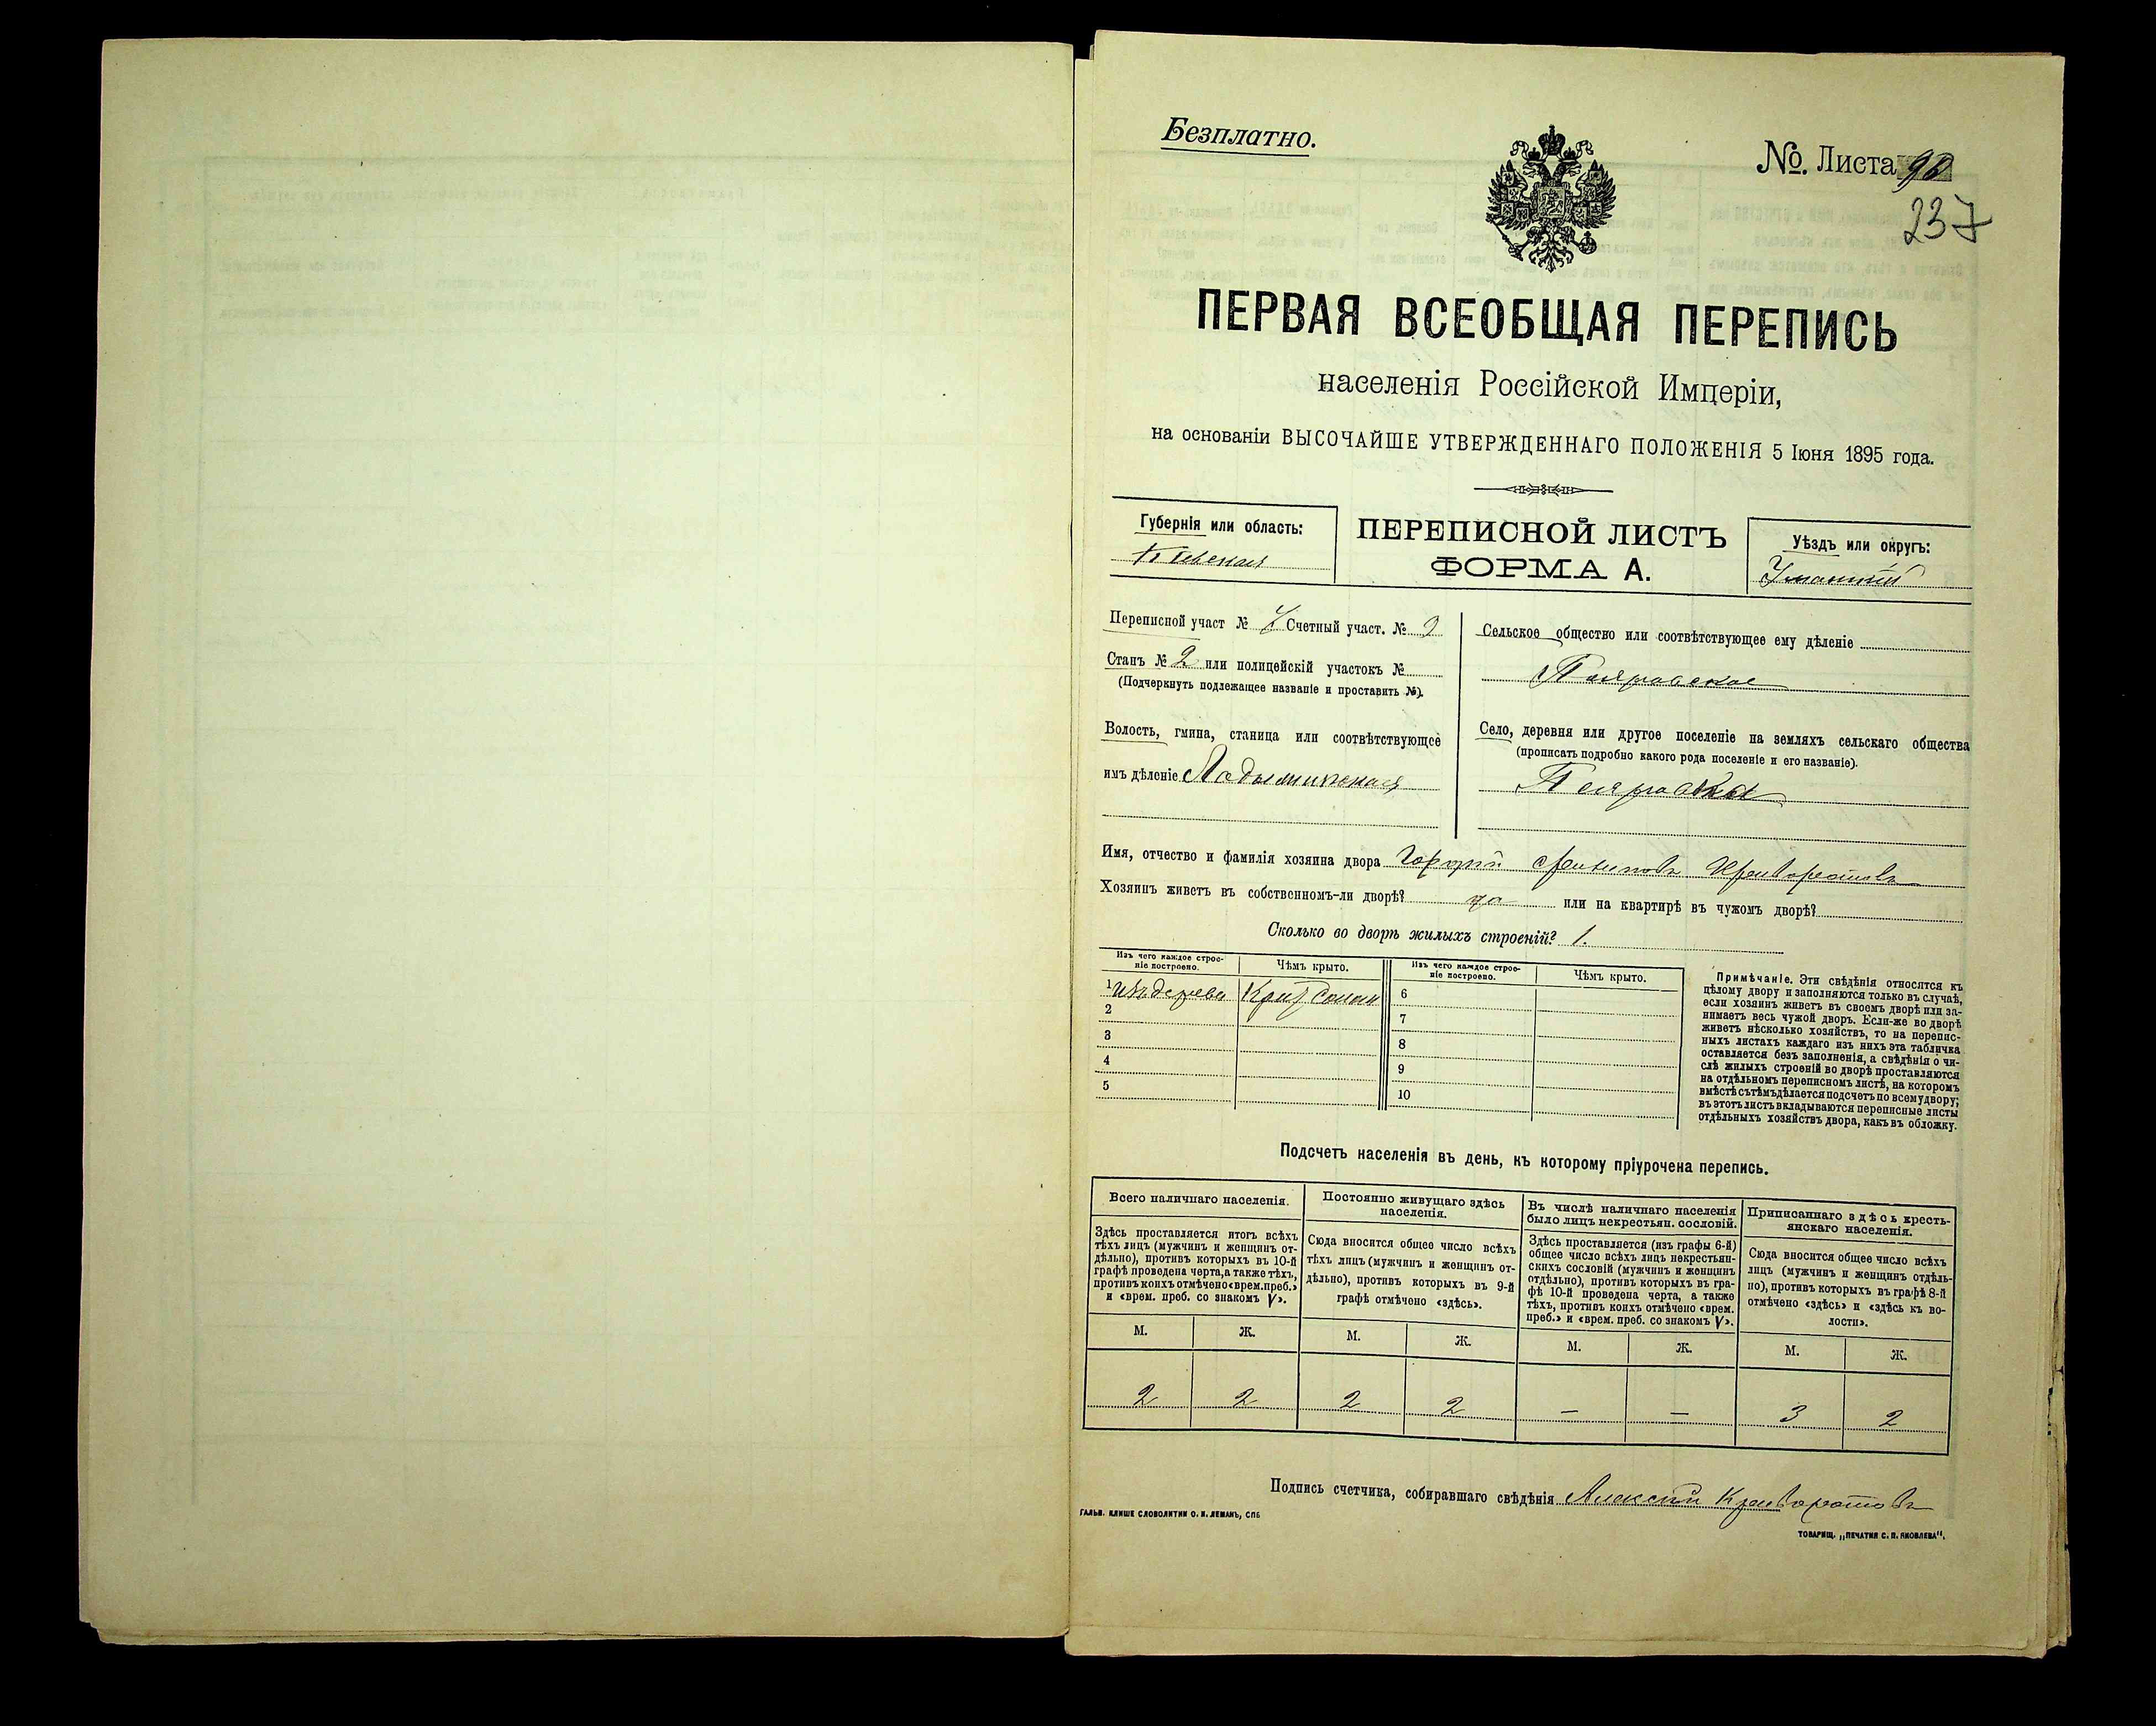 Безплатно.
№. Листа 98
237
ПЕРВАЯ ВСЕОБЩАЯ ПЕРЕПИСЬ
населенія Россійской Имперіи,
на основаніи ВЫСОЧАЙШЕ УТВЕРЖДЕННАГО ПОЛОЖЕНІЯ 5 Іюня 1895 года.
Губернія или область:
Кіевская
ПЕРЕПИСНОЙ ЛИСТЪ
ФОРМА А.
Уѣздъ или округъ:
Уманскій
Переписной участ № 4 Счетный участ. № 9
Станъ № 2 или полицейскій участокъ №
(Подчеркнуть подлежащее названіе и проставить №).
Волость, гмина, станица или соотвѣтствующее
имъ дѣленіе Ладыжинская
Сельское общество или соотвѣтствующее ему дѣленіе
Село, деревня или другое поселеніе на земляхъ сельскаго общества
(прописать подробно какого рода поселеніе и его названіе).
Имя, отчество и фамилія хозяина двора
Хозяинъ живетъ въ собственномъ-ли дворѣ? да или на квартирѣ въ чужомъ дворѣ?
Сколько во дворѣ жилыхъ строеній? 1.
Изъ чего каждое строе-
ніе построено.
Чѣмъ крыто.
Изъ чего каждое строе-
ніе построено.
Чѣмъ крыто.
1 изъ дерева
6
2
7
3
8
4
9
5
10
Примѣчаніе. Эти свѣдѣнія относятся къ
цѣлому двору и заполняются только въ случаѣ,
если хозяинъ живетъ въ своемъ дворѣ или за-
нимаетъ весь чужой дворъ. Если-же во дворѣ
живетъ нѣсколько хозяйствъ, то на перепис-
ныхъ листахъ каждаго изъ нихъ эта табличка
оставляется безъ заполненія, а свѣдѣнія о чи-
слѣ жилыхъ строеній во дворѣ проставляются
на отдѣльномъ переписномъ листѣ, на которомъ
вмѣстѣ съ тѣмъ дѣлается подсчетъ по всему двору;
въ этотъ листъ вкладываются переписные листы
отдѣльныхъ хозяйствъ двора, какъ въ обложку.
Подсчетъ населенія въ день, къ которому пріурочена перепись.
Всего наличнаго населенія.
Здѣсь проставляется итогъ всѣхъ
тѣхъ лицъ (мужчинъ и женщинъ от-
дѣльно), противъ которыхъ въ 10-й
графѣ проведена черта, а также тѣхъ,
противъ коихъ отмѣчено «врем. преб.»
и «врем. преб. со знакомъ V».
Постоянно живущаго здѣсь
населенія.
Сюда вносится общее число всѣхъ
тѣхъ лицъ (мужчинъ и женщинъ от-
дѣльно), противъ которыхъ въ 9-й
графѣ отмѣчено «здѣсь».
Въ числѣ наличнаго населенія
было лицъ некрестьян. сословій.
Здѣсь проставляется (изъ графы 6-й)
общее число всѣхъ лицъ некрестьян-
скихъ сословій (мужчинъ и женщинъ
отдѣльно), противъ которыхъ въ гра-
фѣ 10-й проведена черта, а также
тѣхъ, противъ коихъ отмѣчено «врем.
преб.» и «врем. преб. со знакомъ V».
Приписаннаго здѣсь кресть-
янскаго населенія.
Сюда вносится общее число всѣхъ
лицъ (мужчинъ и женщинъ отдѣль-
но), противъ которыхъ въ графѣ 8-й
отмѣчено «здѣсь» и «здѣсь къ во-
лости».
М. Ж. М. Ж. М. Ж. М. Ж.
2 2 2 2 — — 3 2
Подпись счетчика, собиравшаго свѣдѣнія Алексѣй
ГАЛЬВ. КЛИШЕ СЛОВОЛИТНИ О. И. ЛЕМАНЪ, СПБ
ТОВАРИЩ. „ПЕЧАТНЯ С. П. ЯКОВЛЕВА“.